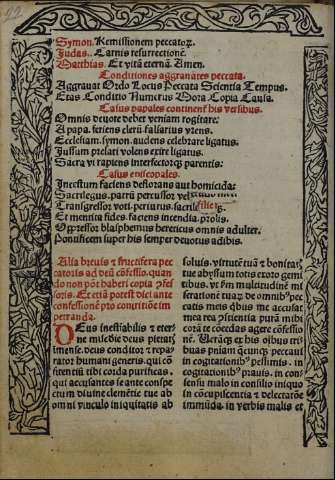 Symon. Remissionem peccatoꝝ.
Judas. Carnis resurrectionē.
Matthias. Et vitā eternā. Amen.
Conditiones aggrauātes peccata.
Aggrauat Ordo Locus Peccata Scientia Tempus.
Etas Conditio Numerus Mora Copia Causa.
Casus papales continenť his versibus.
Omnis deuote debet veniam rogitare:
A papa. feriens clerū falsarius vrens.
Ecclesiam. symon. audens celebrare ligatus.
Jussum prelati volens exire ligatus.
Sacra vi rapiens interfectorqꝫ parentis:
Casus episcopales.
Incestum faciens deflorans aut homicida:
Sacrilegus. patrū percussor vel
Transgressor voti. periurus. sacrilegusqꝫ.
Et mentita fides. faciens incendia. prolis.
Oppressor blasphemus hereticus omnis adulter.
Pontificem super his semper deuotus adibis.
Alia breuis & fructifera pec
catoris ad deū cōfessio. quan
do non pōt haberi copia ꝯfes
soris. Et etiā potest dici ante
confessionē pro contritiōe im
petranda.
DEus ineffabilis & eter
ne misericordie pietatꝭ
imense. deus conditor & repa
rator humani generis. qui cō
fitentiū tibi corda purificas.
qui accusantes se ante conspe
ctum diuine clemētie tue ab
omni vinculo iniquitatis ab
soluis. virtutē tuā & bonitatꝭ
tue abyssum totis exoro gemi
tibus. vt ẜm multitudinē mi
serationū tuaꝝ. de omnibꝰ pec
catis meis
mea ꝯscientia purā mihi
corā te
nē.
bus
in cogitationibꝰ pessimis. in
cogitationibꝰ prauis. in con
sensu malo in consilio iniquo
in concupiscentia & delectatiōe
immūda. in verbis malis et